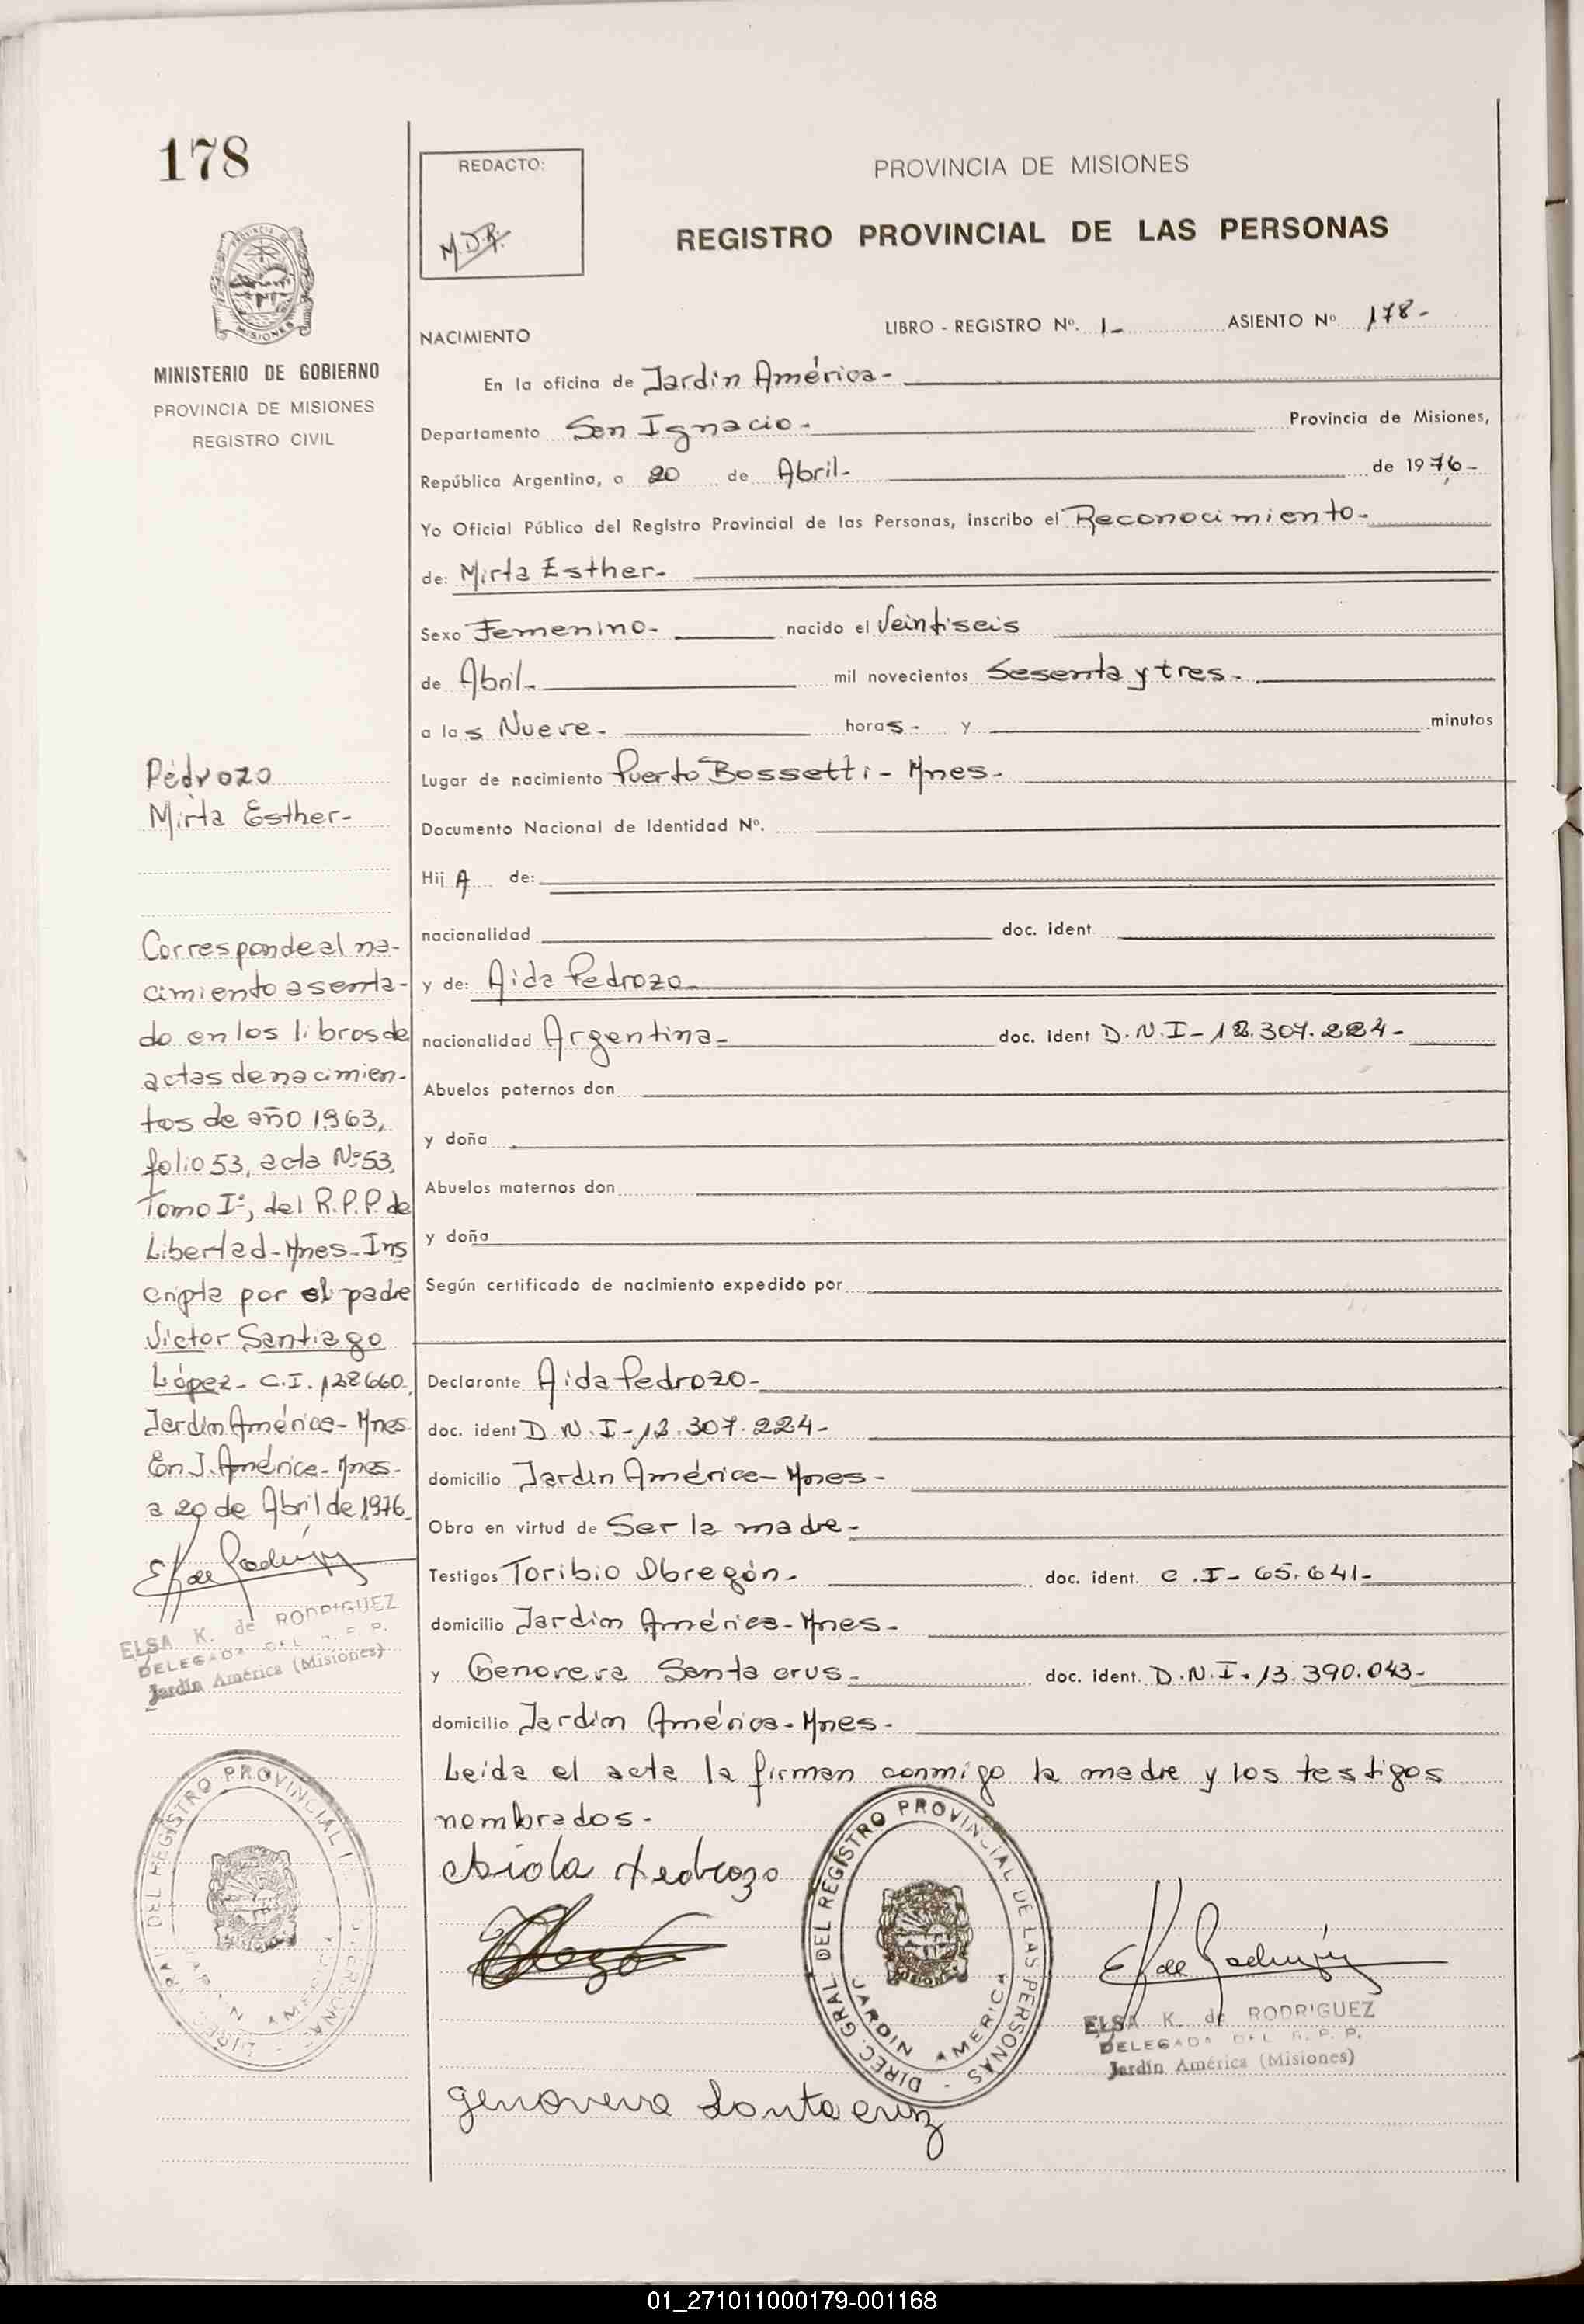 178
MINISTERIO DE GOBIERNO
PROVINCIA DE MISIONES
REGISTRO CIVIL
Pedrozo
Mirta Esther-
Corresponde al na-
cimiento asenta-
do en los libros de
actas de nacimien-
tos de año 1963,
folio 53, acta Nº 53,
Tomo Iº, del R.P.P. de
Libertad-Mnes-Ins
cripta por el padre
Victor Santiago
López- C.I. 128660,
Jardin América- Mnes
En J. América- Mnes-
a 20 de Abril de 1976.
ELSA K. de RODRIGUEZ
DELEGADA DEL R. P. P.
Jardín América (Misiones)
REDACTO:
M.D.R.
PROVINCIA DE MISIONES
REGISTRO PROVINCIAL DE LAS PERSONAS
NACIMIENTO LIBRO - REGISTRO Nº. 1- ASIENTO Nº 178-
En la oficina de Jardin América-
Departamento San Ignacio- Provincia de Misiones,
República Argentina, a 20 de Abril- de 1976-
Yo Oficial Público del Registro Provincial de las Personas, inscribo el Reconocimiento-
de: Mirta Esther-
Sexo Femenino- nacido el Veintiseis
de Abril- mil novecientos Sesenta y tres-
a las Nueve- horas- y minutos
Lugar de nacimiento Puerto Bossetti- Mnes-
Documento Nacional de Identidad Nº.
Hij A de:
nacionalidad doc. ident.
y de: Aida Pedrozo
nacionalidad Argentina- doc. ident D.N.I- 12.307.224-
Abuelos paternos don
y doña
Abuelos maternos don
y doña
Según certificado de nacimiento expedido por
Declarante Aida Pedrozo-
doc. ident D.N.I-12.307.224-
domicilio Jardin América- Mnes-
Obra en virtud de Ser la madre-
Testigos Toribio Obregón- doc. ident. C.I- 65.641-
domicilio Jardin América- Mnes-
y Genoveva Santa crus- doc. ident. D.N.I- 13.390.043-
domicilio Jardin América- Mnes-
Leida el acta la firman conmigo la madre y los testigos
nombrados-
Aida Pedrozo
DIREC. GRAL DEL REGISTRO PROVINCIAL DE LAS PERSONAS -
JARDIN AMERICA
ELSA K. de RODRIGUEZ
DELEGADA DEL R. P. P.
Jardín América (Misiones)
genoveva Santa cruz
01_271011000179-001168